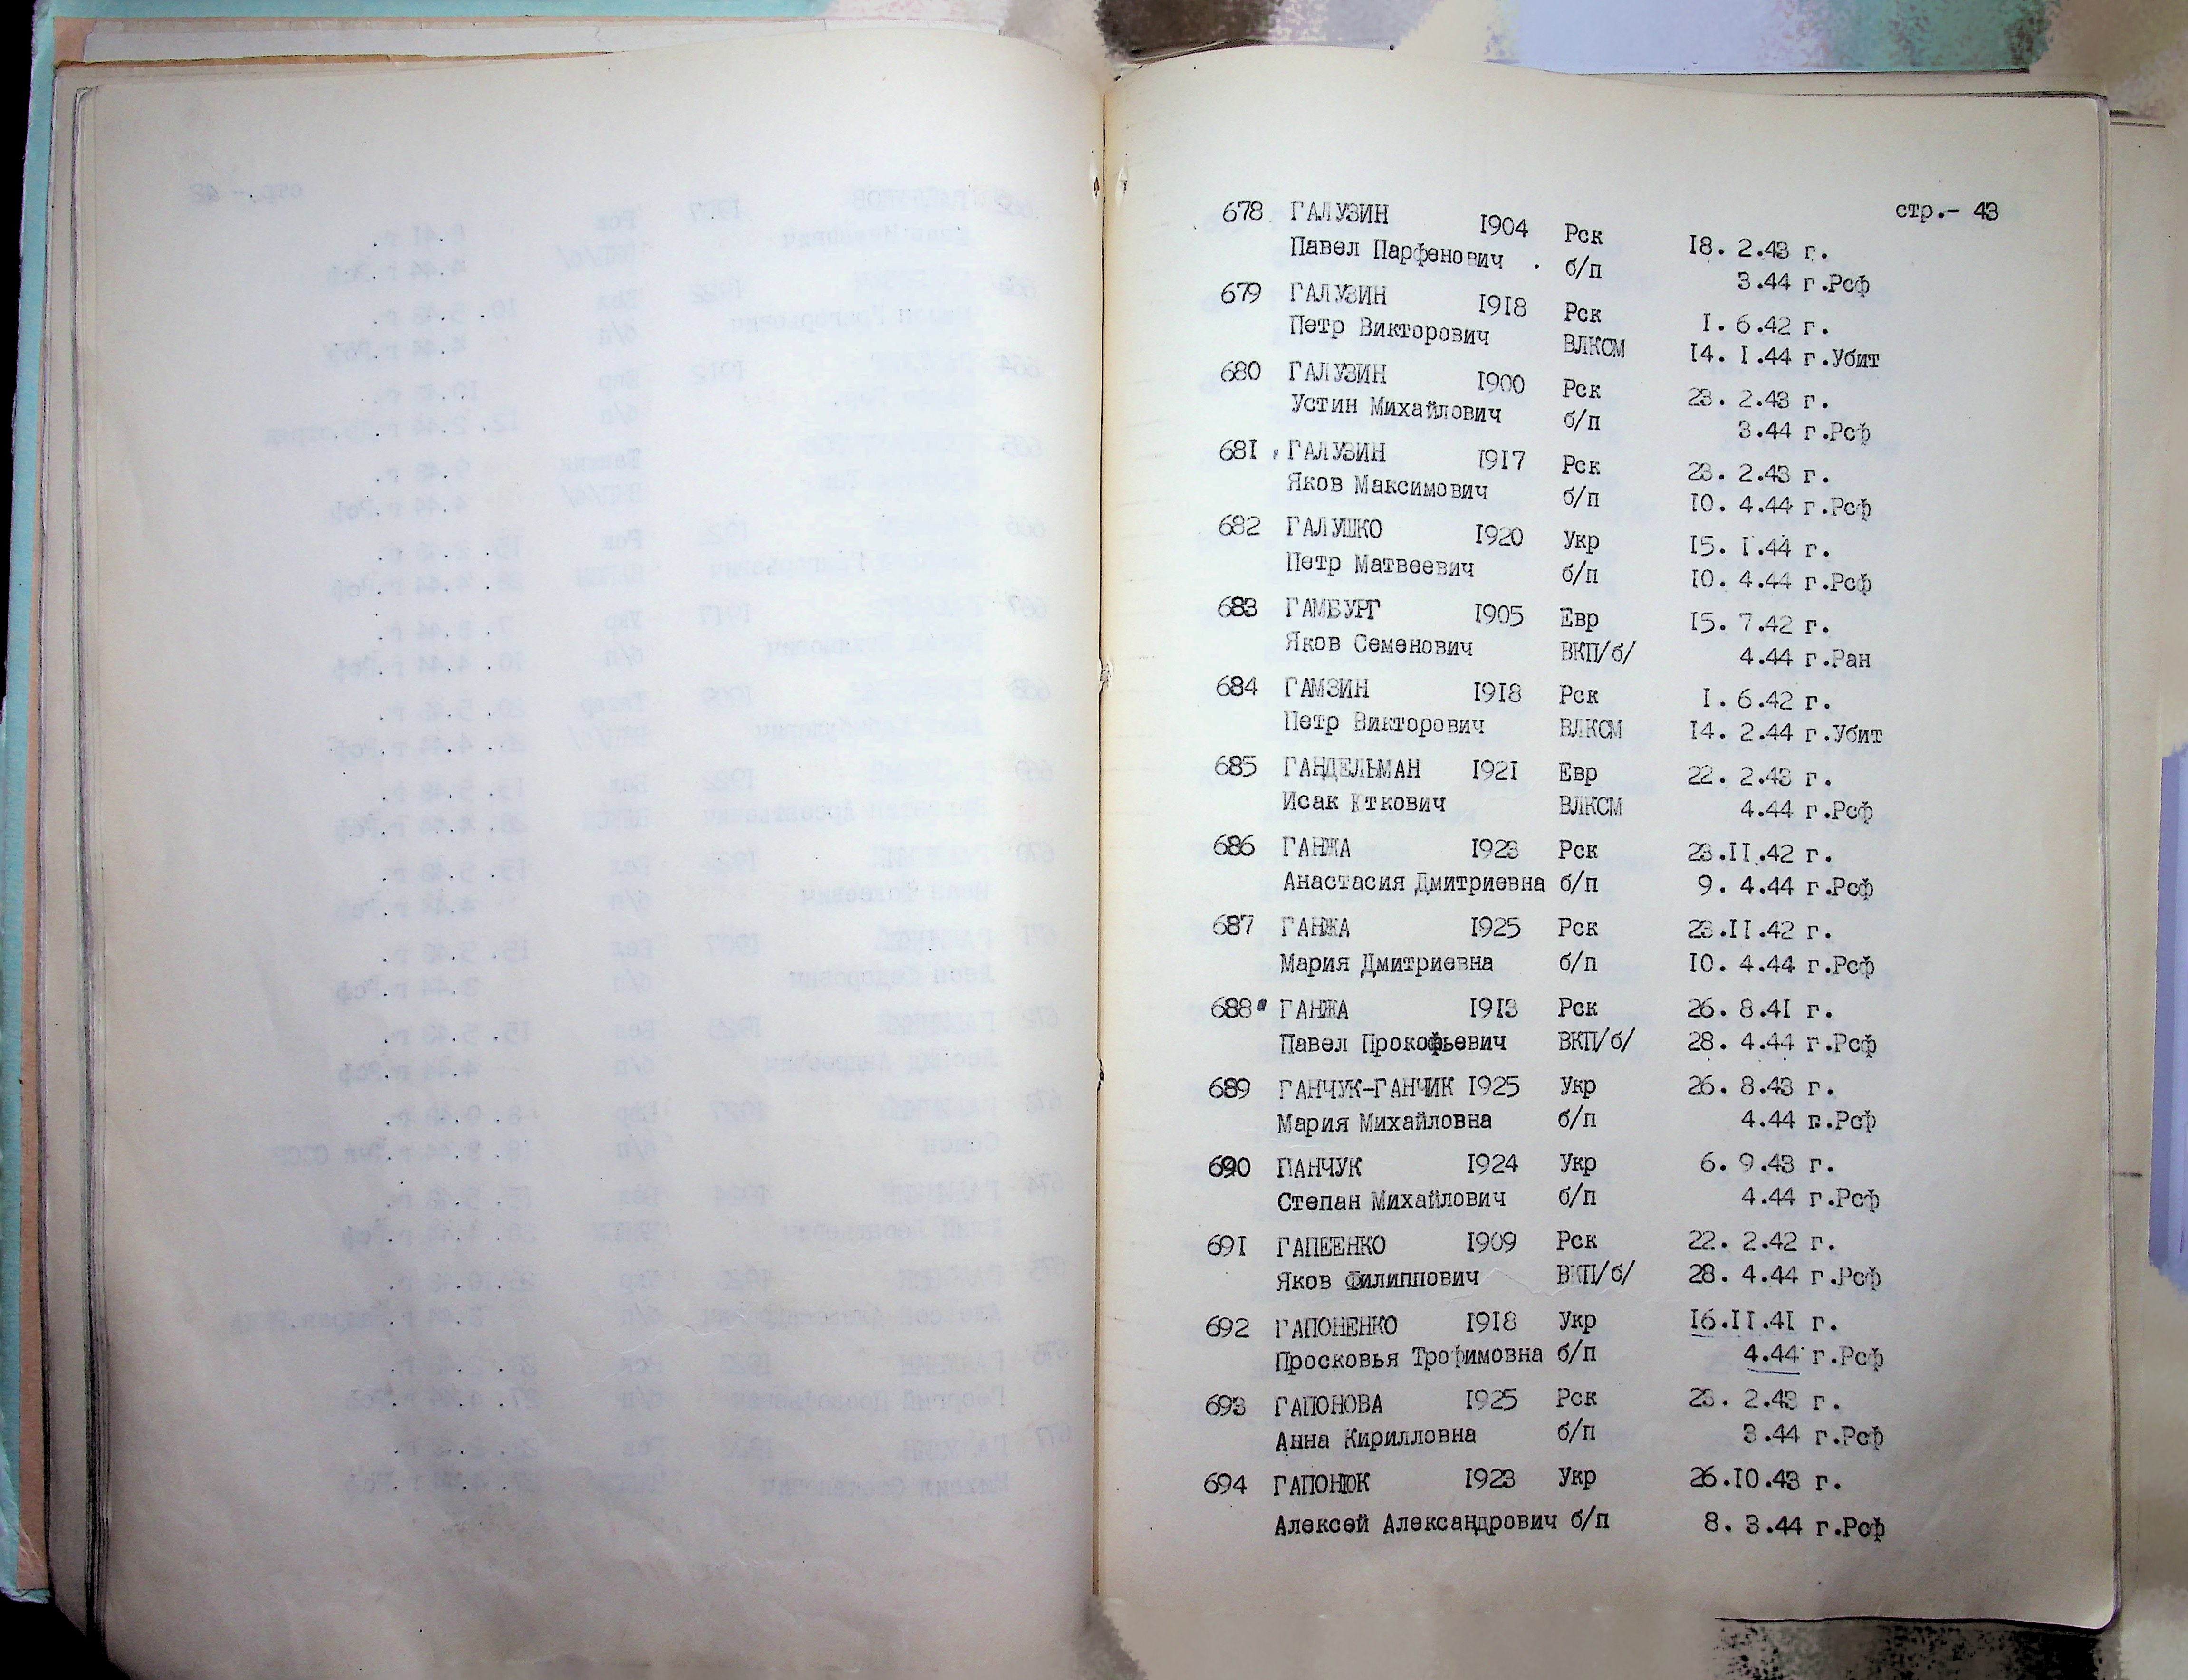 стр.- 43
678 ГАЛУЗИН 1904 Рск 18. 2.43 г.
Павел Парфенович б/п 3.44 г.Рсф
679 ГАЛУЗИН 1918 Рск 1. 6.42 г.
Петр Викторович ВЛКСМ 14. 1.44 г.Убит
680 ГАЛУЗИН 1900 Рск 23. 2.43 г.
Устин Михайлович б/п 3.44 г.Рсф
681 ГАЛУЗИН 1917 Рск 23. 2.43 г.
Яков Максимович б/п 10. 4.44 г.Рсф
682 ГАЛУШКО 1920 Укр 15. 1.44 г.
Петр Матвеевич б/п 10. 4.44 г.Рсф
683 ГАМБУРГ 1905 Евр 15. 7.42 г.
Яков Семенович ВКП/б/ 4.44 г.Ран
684 ГАМЗИН 1918 Рск 1. 6.42 г.
Петр Викторович ВЛКСМ 14. 2.44 г.Убит
685 ГАНДЕЛЬМАН 1921 Евр 22. 2.43 г.
Исак Иткович ВЛКСМ 4.44 г.Рсф
686 ГАНЖА 1923 Рск 23.11.42 г.
Анастасия Дмитриевна б/п 9. 4.44 г.Рсф
687 ГАНЖА 1925 Рск 23.11.42 г.
Мария Дмитриевна б/п 10. 4.44 г.Рсф
688 ГАНЖА 1913 Рск 26. 8.41 г.
Павел Прокофьевич ВКП/б/ 28. 4.44 г.Рсф
689 ГАНЧУК-ГАНЧИК 1925 Укр 26. 8.43 г.
Мария Михайловна б/п 4.44 г.Рсф
690 ПАНЧУК 1924 Укр 6. 9.43 г.
Степан Михайлович б/п 4.44 г.Рсф
691 ГАПЕЕНКО 1909 Рск 22. 2.42 г.
Яков Филиппович ВКП/б/ 28. 4.44 г.Рсф
692 ГАПОНЕНКО 1918 Укр 16.11.41 г.
Просковья Трофимовна б/п 4.44 г.Рсф
693 ГАПОНОВА 1925 Рск 23. 2.43 г.
Анна Кирилловна б/п 3.44 г.Рсф
694 ГАПОНЮК 1923 Укр 26.10.43 г.
Алексей Александрович б/п 8. 3.44 г.Рсф